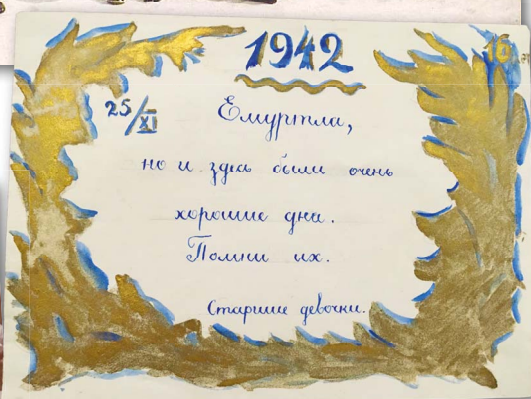 1942
16
25/XI
Емуртла,
но и здесь были очень
хорошие дни.
Помни их.
Старшие девочки.